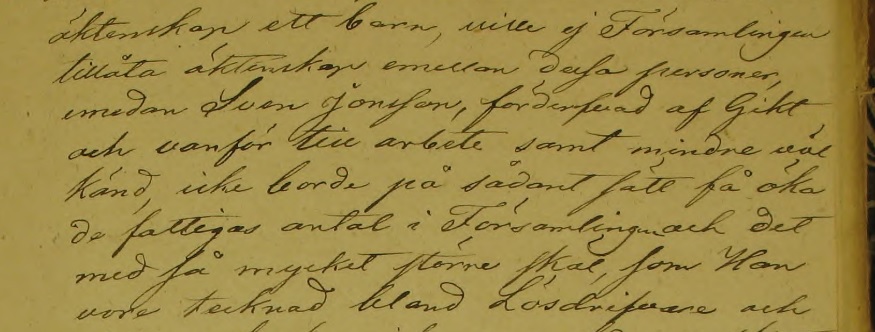 äktenskap ett barn, ville ej Församlingen
tillåta äktenskap emellan dessa personer,
emedan Sven Jonsson, förderfvad af Gikt
och vanför till arbete samt mindre väl
känd, icke borde på sådant sätt få öka
de fattigas antal i Församlingen och det
med så mycket större skäl, som Han
vore tecknad bland Lösdrifvare och